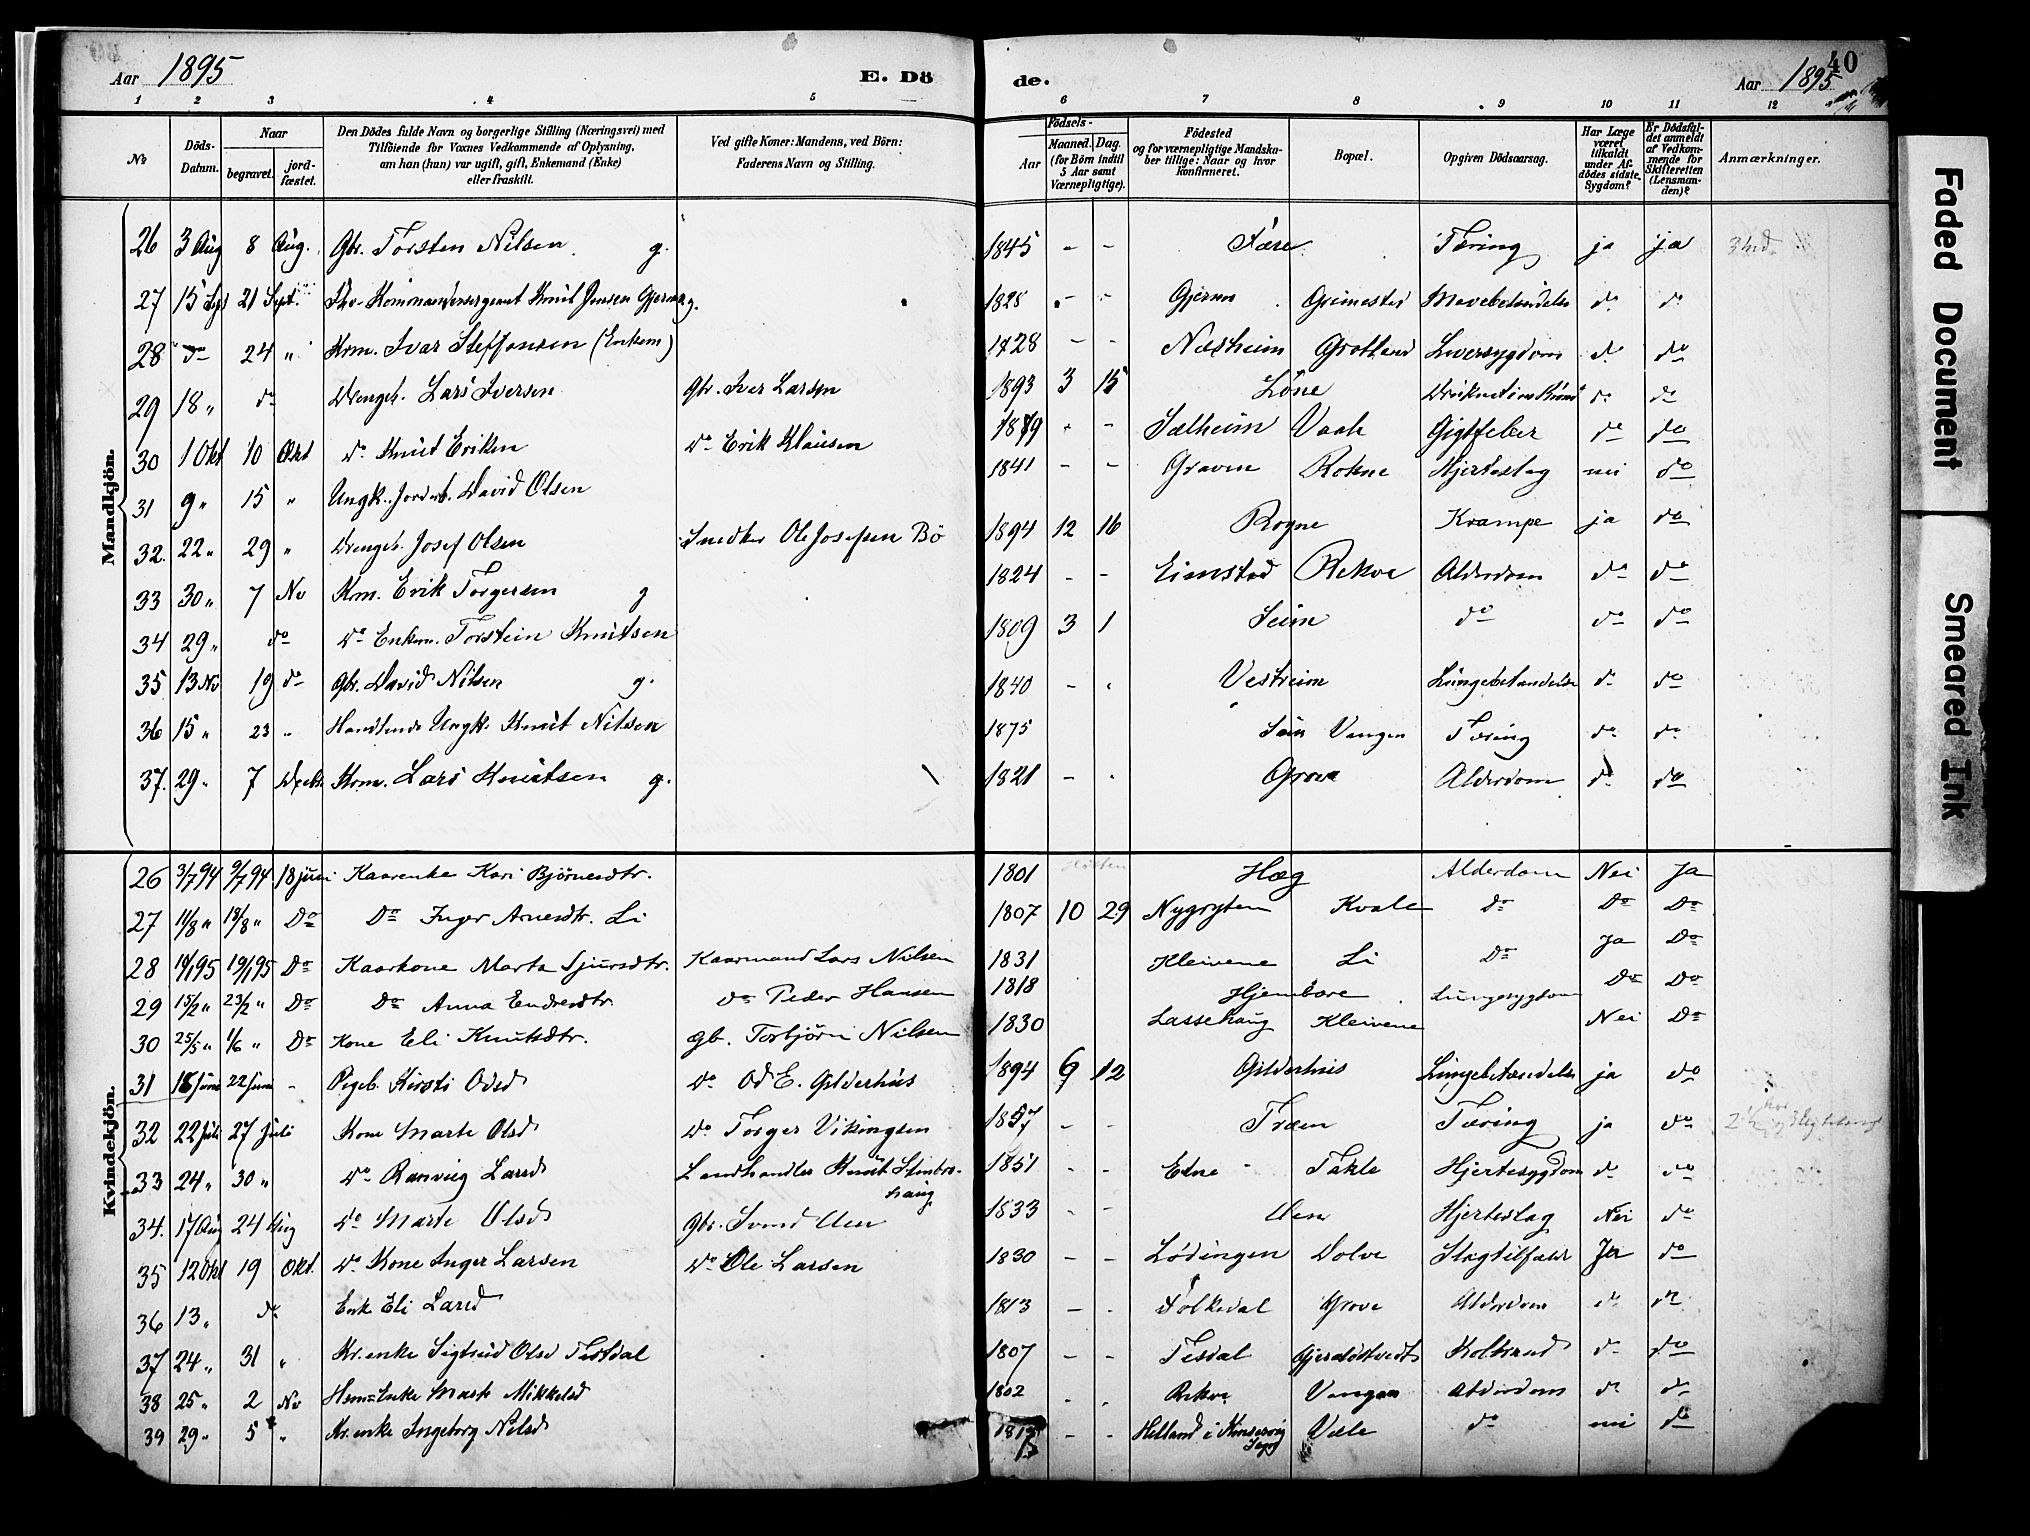 Aar 1895 E. Dö de. Aar 1895 40
1 2 3 4 5 6 7 8 9 10 11 12
No Döds-Datum. Naar begravet. jordfæstet. Den Dödes fulde Navn og borgerlige Stilling (Næringsvei) med Tilföiende for Voxnes Vedkommende af Oplysning, om han (hun) var ugift, gift, Enkemand (Enke) eller fraskilt. Ved gifte Koner: Mandens, ved Börn: Faderens Navn og Stilling. Födsels- Aar Maaned. Dag. (for Börn indtil 5 Aar samt Værnepligtige). Födested og for værnepligtige Mandskaber tillige: Naar og hvor konfirmeret. Bopæl. Opgiven Dödsaarsag. Har Læge været tilkaldt under Afdödes sidste Sygdom? Er Dödsfaldet anmeldt af Vedkommende for Skifteretten (Lensmanden)? Anmærkninger.
Mandkjön.
26 3 Aug 8 Aug. Gbr. Torsten Nilsen g. 1845 - - Fære Tæring ja ja
27 15 Sept 21 Sept. Kommandersergeant Knut Jensen Gjerme g. 1828 - - Gjerme Grimestad Mavebetændelse do do
28 do 24 " Krm. Ivar Steffensen (Enkem) 1828 - - Næsheim Grotland Leversygdom do do
29 18 " do Drengeb. Lars Iversen Gbr. Iver Larsen 1893 3 15 Löne do do
30 1 Okt 10 Okt do Knut Eriksen do Erik Klausen 1879 - - Sælheim Vaale Gigtfeber do do
31 9 " 15 " Ungk. David Olsen 1841 - - Graven Rokne Hjerteslag nei do
32. 22 " 29 " Drengeb. Josef Olsen Snedker Ole Josefsen Bö 1894 12 16 Rogne Krampe ja do
33 30 " 7 Nov Krm. Erik Torgersen g 1824 - - Eimstad Rekve Alderdom do do
34 29 " do do Enkem. Torstein Knutsen 1809 3 1 Seim do do do
35 13 Nov 19 do Gbr. David Nilsen g. 1840 - - Vestreim Lungebetændelse do do
36 15 " 23 " Ungk. Knut Nilsen 1875 Vangen Tæring do do
37. 29 " 7 Decbr Krm. Lars Knutsen g. 1821 - - Grove Alderdom do do
Kvindekjön.
26 3/7 94 9/7 94 18 juni Kaarenke Kari Bjørnesdtr. 1801 Høsten Hæg Alderdom Nei Ja
27 11/8 " 18/8 " Do Do Inger Arnesdtr. Li 1807 10 29 Nygryten Kvale Do Do Do
28 19/1 95 Do Kaarkone Marta Sjursdtr. Kaarmand Lars Nilsen 1831 Kleivene Li Do Ja Do
29 15/2 " 23/2 " Do Do Anna Endresdtr. Do Peder Hansen 1818 Hjembore Lungesygdom Do Do
30 25/5 " 1/6 " Do Kone Eli Knutsdtr. gb. Torbjørn Nilsen 1830 Lassehaug Kleivene Nei Do
31 18 Juni 22 Juni - Pigeb. Kirsti Odsd do Od E. Gilderhus 1894 6 12 Gilderhus Lungebetændelse ja do
32 22 Juli 27 Juli Kone Marte Olsd do Torger Vikingsen 1857 - - Træen Tæring ja do
33 24 " 30 " do Ranveig Larsd Landhandler Knut Stenbrohaug 1851 - - Etne Takle Hjertesygdom do do
34. 17 Aug 24 Aug do Marte Olsd Gbr. Svend Uen 1833 - - Uen Hjerteslag Nei do
35 12 Okt 19 Okt. do Kone Inger Larsen do Ole Larsen 1830 - - Lødingen Dolve Slagtilfælde Ja do
36 13 " do Enk Eli Larsd 1813 - - Folkedal Grove Alderdom do do
37 24 " 31 " Kr. enke Sigtrud Olsd Tesdal 1807 - - Tesdal Gjeraldstvedt Koldbrand do do
38 25 " 2 Nov Enke Marte Mikkelsd 1802 - - Rekve Vangen Alderdom do do
39 29 " 5 " Kr. enke Ingeborg Nilsd - - Helland i Kinservig Sogn Væle do nei do
Faded Document
Smeared Ink